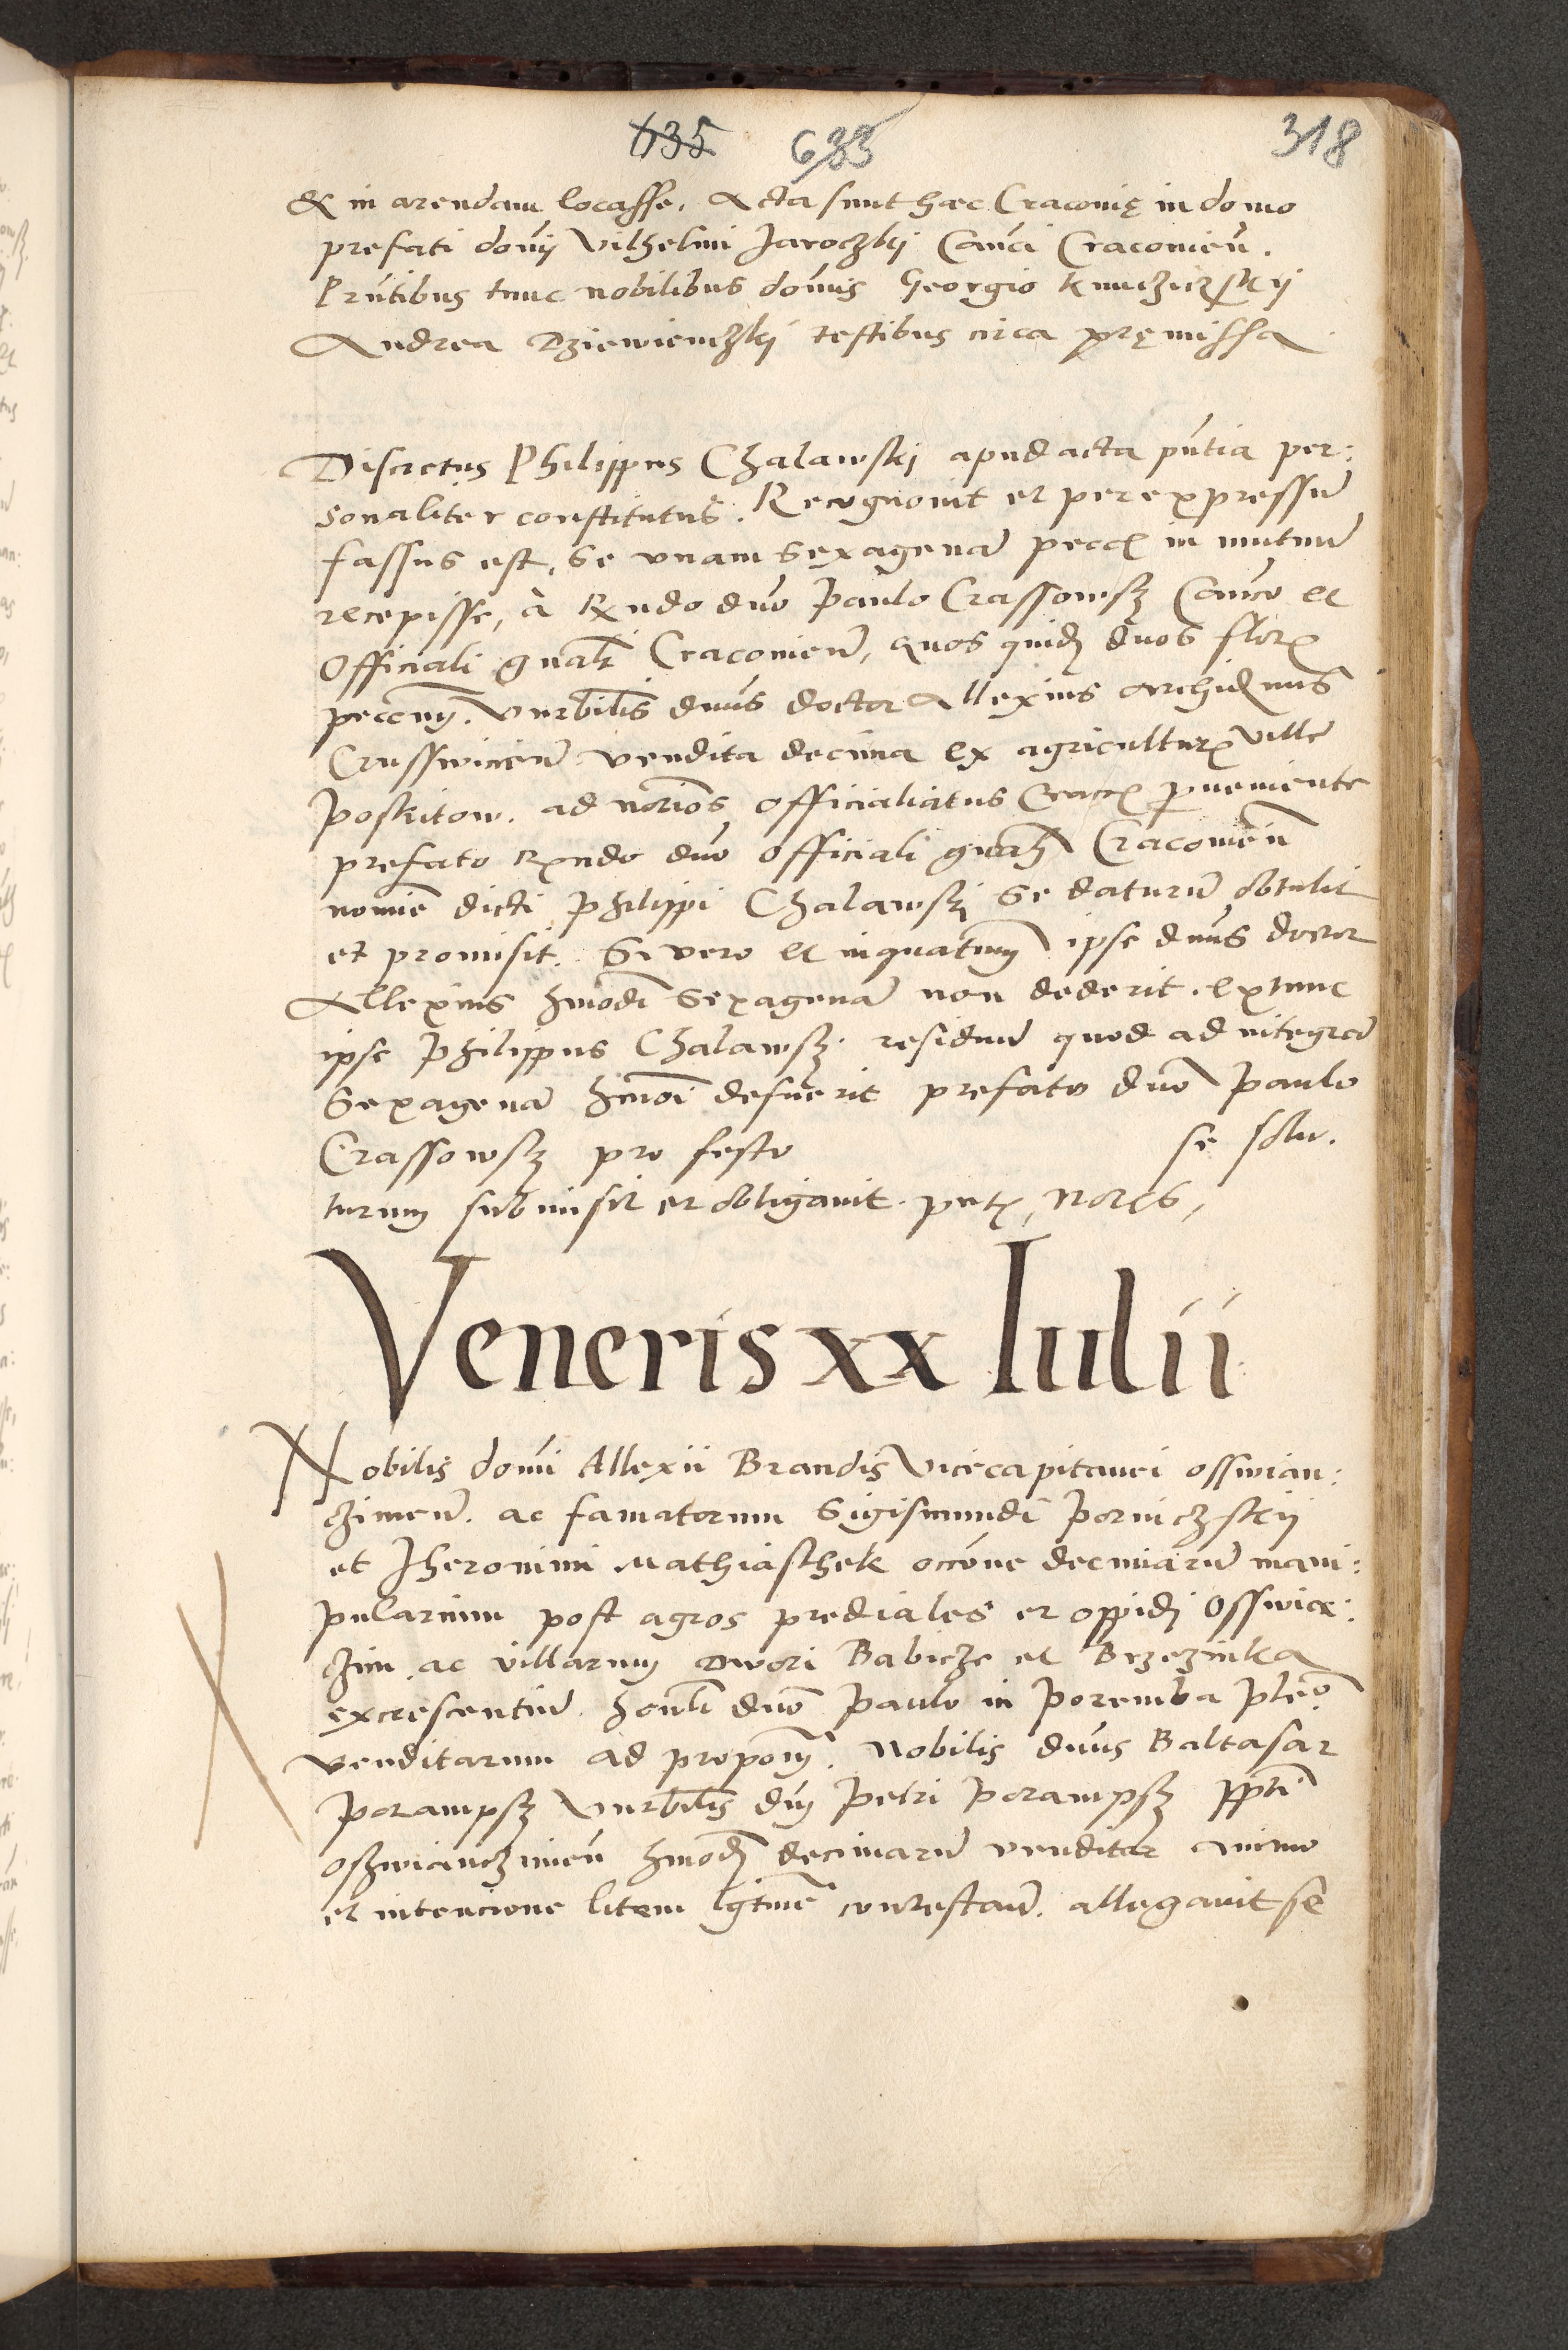 635 633 318
& in arendam locasse. Acta sunt hæc Cracovię in domo
prefati domij Vilhelmi Jaroczkij Canci Cracovień.
Prńtibus tunc nobilibus domis Georgio
Andrea Dziewienczkij testibus circa pręmissa
Discretus Philippus Chalawskj apud acta pńtia per:
sonaliter constitutus. Recognovit et per expressũ
fassus est, se vnam sexagenã pecc in mutuũ
recepisse, à Rndo dno Paulo Crassowsz Canco et
Officiali gnali Cracovieñ, quos quidz duos flor
peccnij. Vnrbilis dnus doctor Allexius Archidnus
Crusswicień vendita decima ex agricultur ville
Poskitow. ad noriōs officialiatus Crac pvenientē
prefato Rndo dno officiali gnali Cracovień
nomie dicti Philippi Chalawskj se daturũ obtulit
et promisit. Si vero et inquatum ipse dnus doctor
Allexius hmodi sexagenã non dederit. extunc
ipse Philippus Chalawsz. residuũ quod ad integrã
sexagenã hmoi defuerit prefato dno Paulo
Crassowsz pro festo se solu.
turum submisit et obligavit. pntꝫ, Noręs,
Veneris xx Iulii
Nobilis domi Allexii Brandis Vicecapitanei osswian:
czimeñ. ac famatorum Sigismundi Porniczskij
et Jheronimi Mathiaschek occōne decimarũ mani:
pularium post agros prediales et oppidj Osswię:
czim ac villarum Dwori Babicze et Brzezinka
excrescentiũ. honli dno Paulo in Poremba plēo
venditarum ad proponm. Nobilis dnus Baltasar
Porampsz Vnrbilis dnj Petri Porampsz ppti
oszwianczimeń hmodj decimarũ venditor animo
et intencione litem lgtime contestań. allegavit se